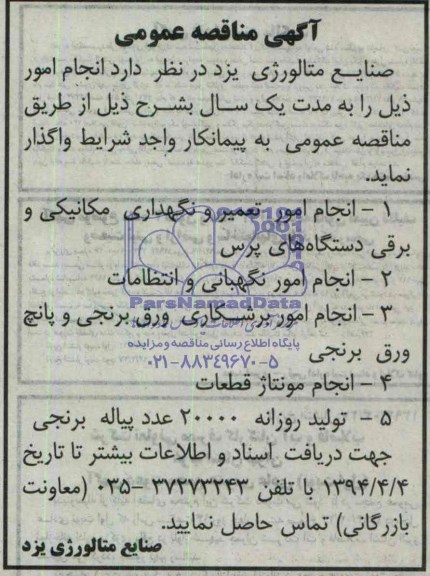 آگهی مناقصه عمومی
صنایع متالورژی یزد در نظر دارد انجام امور
ذیل را به مدت یک سال بشرح ذیل از طریق
مناقصه عمومی به پیمانکار واجد شرایط واگذار
نماید.
۱ – انجام امور تعمیر و نگهداری مکانیکی و
برقی دستگاه‌های پرس
۲ – انجام امور نگهبانی و انتظامات
ParsNamadData
۳ – انجام امور برشکاری ورق برنجی و پانچ
پایگاه اطلاع رسانی مناقصه و مزایده
ورق برنجی
۰۲۱-۸۸۳۴۹۶۷۰-۵
۴ – انجام مونتاژ قطعات
۵ – تولید روزانه ۲۰۰۰۰ عدد پیاله برنجی
جهت دریافت اسناد و اطلاعات بیشتر تا تاریخ
۱۳۹۴/۴/۴ با تلفن ۳۷۲۷۳۲۴۳ –۰۳۵ (معاونت
بازرگانی) تماس حاصل نمایید.
صنایع متالورژی یزد